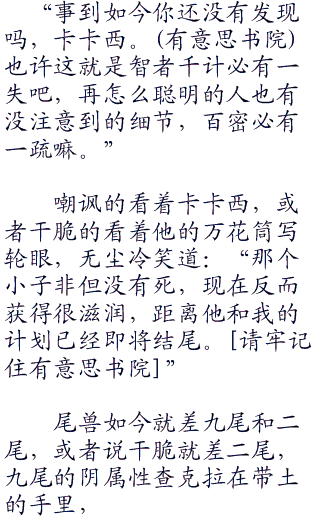 “事到如今你还没有发现
吗，卡卡西。(有意思书院)
也许这就是智者千计必有一
失吧，再怎么聪明的人也有
没注意到的细节，百密必有
一疏嘛。”
嘲讽的看着卡卡西，或
者干脆的看着他的万花筒写
轮眼，无尘冷笑道：“那个
小子非但没有死，现在反而
获得很滋润，距离他和我的
计划已经即将结尾。[请牢记
住有意思书院]”
尾兽如今就差九尾和二
尾，或者说干脆就差二尾，
九尾的阴属性查克拉在带土
的手里，